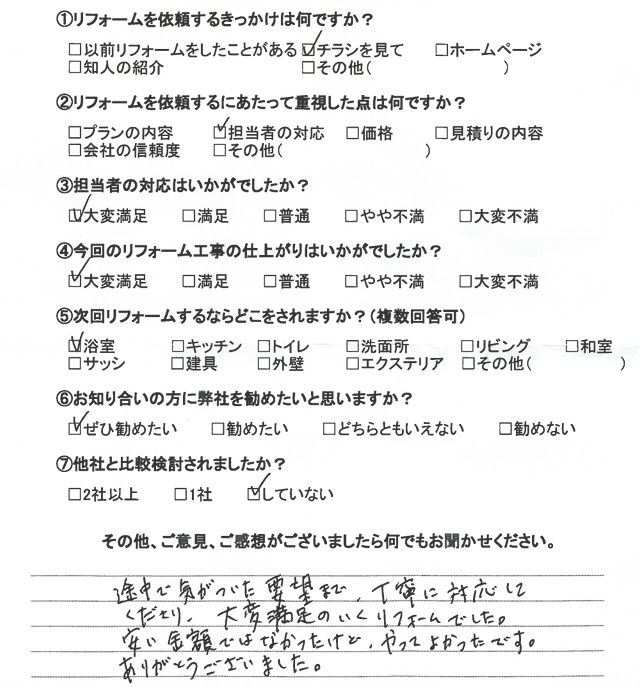 ①リフォームを依頼するきっかけは何ですか？
□以前リフォームをしたことがある ☑チラシを見て □ホームページ
□知人の紹介 □その他( )
②リフォームを依頼するにあたって重視した点は何ですか？
□プランの内容 ☑担当者の対応 □価格 □見積りの内容
□会社の信頼度 □その他( )
③担当者の対応はいかがでしたか？
☑大変満足 □満足 □普通 □やや不満 □大変不満
④今回のリフォーム工事の仕上がりはいかがでしたか？
☑大変満足 □満足 □普通 □やや不満 □大変不満
⑤次回リフォームするならどこをされますか？（複数回答可）
☑浴室 □キッチン □トイレ □洗面所 □リビング □和室
□サッシ □建具 □外壁 □エクステリア □その他( )
⑥お知り合いの方に弊社を勧めたいと思いますか？
☑ぜひ勧めたい □勧めたい □どちらともいえない □勧めない
⑦他社と比較検討されましたか？
□2社以上 □1社 ☑していない
その他、ご意見、ご感想がございましたら何でもお聞かせください。
途中で気がついた要望まで、丁寧に対応して
くださり、大変満足のいくリフォームでした。
安い金額ではなかったけど、やってよかったです。
ありがとうございました。